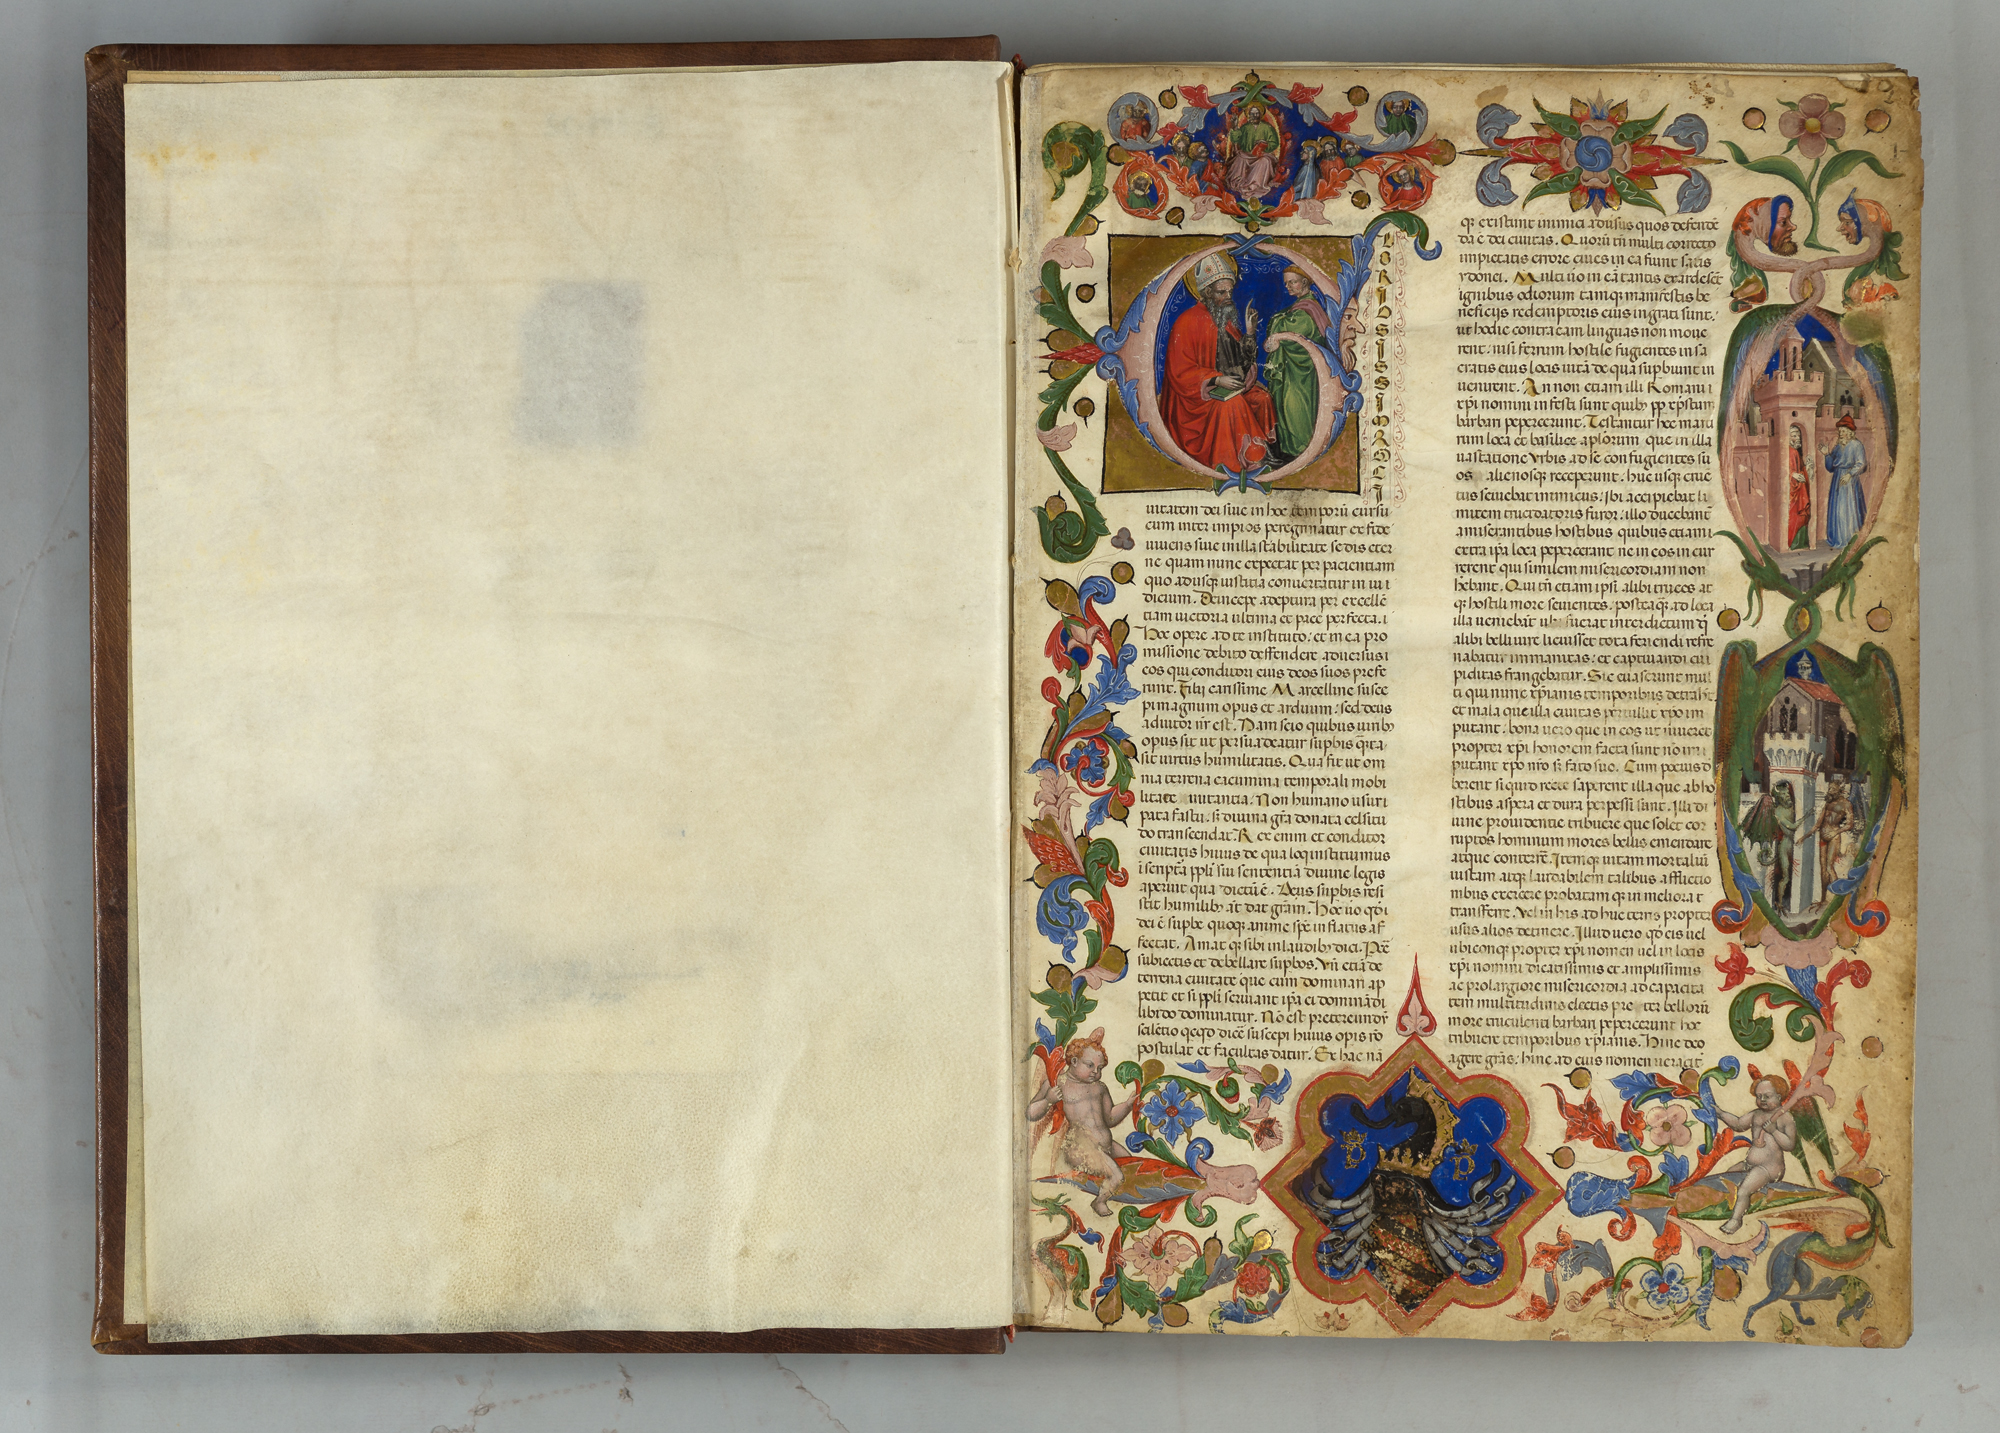 GLORIOSISSIMAM CI
uitatem dei siue in hoc temporũ cursu
cum inter impios peregrinatur ex fide
uiuens siue in illa stabilitate sedis eter
ne quam nunc expectat per pacientiam
quo adusq; iustitia conuertatur in iu i
dicium. Deinceps adeptura per excellẽ
tiam uictoria ultima et pace perfecta. i
Hoc opere ad te instituto: et mea pro
missione debito deffendere aduersus i
eos qui conditori eius deos suos prefe
runt. Fili carissime Marcelline susce
pi magnum opus et arduum: sed deus
adiutor nr̃ est. Nam scio quibus uirib;
opus sit ut persuadeatur supbis q̃ta
sit uirtus humilitatis. Qua fit ut om
nia terrena cacumina temporali mobi
litate nutantia. Non humano usur i
pata fastu. s; diuina gr̃a donata celsitu
do transcendat. Rex enim et conditor
ciuitatis huius de qua loqui instituimus
i scriptã ppli sui sententiã diuine legis
aperuit qua dictũ ẽ. Deus supbis resi
stit humilib; aũt dat gr̃am. Hoc ũo qd̃ i
dei ẽ supbe quoq; anime sp̃s inflatus af
fectat. Amatq; sibi in laudib; dici. Pcẽ
subiectis et debellare supbos. Vñ etiã de
terrena ciuitate que cum dominari ap
petit et si ppli seruiant ip̃a ei dominãdi
libido dominatur. Nõ est pretereundũ
silẽtio qcqd dicẽ suscepi huius opis rõ
postulat et facultas datur. Ex hac nã
q; existunt inimici aduersus quos defendẽ
da ẽ dei ciuitas. Quorũ tñ multi correcto
impietatis errore ciues in ea fiunt satis
ydonei. Multi ũo in eã tantis exardescẽt
ignibus odiorum tamq; manifestis be
neficijs redemptoris eius ingrati sunt:
ut hodie contra eam linguas non moue
rent: nisi ferrum hostile fugientes in sa
cratis eius locis uitã de qua supbiunt in
uenirent. An non etiam illi Romani i
xp̃i nomini infesti sunt quib; pp xp̃istum
barbari pepercerunt. Testantur hoc marti
rum loca et basilice aplõrum que in illa
uastatione urbis ad se confugientes su
os alienosq; receperunt. huc usq; crue
tus seuiebat inimicus: ibi accipiebat li
mitem trucidatoris furor: illo ducebant
a miserantibus hostibus quibus etiam i
extra ip̃a loca pepercerant ne in eos incur
rerent qui similem misericordiam non
hẽbant. Qui tñ etiam ipsi alibi truces at
q; hostili more seuientes: posteaq; ad loca
illa ueniebãt ubi fuerat interdictum q̃
alibi belli iure licuisset tota feriendi refre
nabatur immanitas: et captiuandi cu
piditas frangebatur. Sic euaserunt mul
ti qui nunc xp̃ianis temporibus detrahũt
et mala que illa ciuitas pertullit xp̃o im
putant. bona uero que in eos ut uiuerent
propter xp̃i honorem facta sunt nõ im i
putant xp̃o nr̃o s; fato suo. Cum pocius d
berent si quid recte saperent illa que ab ho
stibus aspera et dura perpessi sunt. illi di
uine prouidentie tribuere que solet cor
ruptos hominum mores bellis emendare
atque conterẽ. Itemq; uitam mortaliũ
iustam atq; laudabilem talibus afflictio
nibus exercere probatamq; in meliora t
transferre. Vel in his adhuc terris propter
usus alios detinere. Illud uero qd̃ eis uel
ubicunq; propter xp̃i nomen uel in locis
xp̃i nomini dicatissimis et amplissimis
ac pro largiore misericordia ad capacita
tem multitudinis electis preter bellorũ
more truculenti barbari pepercerunt hoc
tribuere temporibus xp̃ianis. Hinc deo
agere grãs: hinc ad eius nomen ueracit